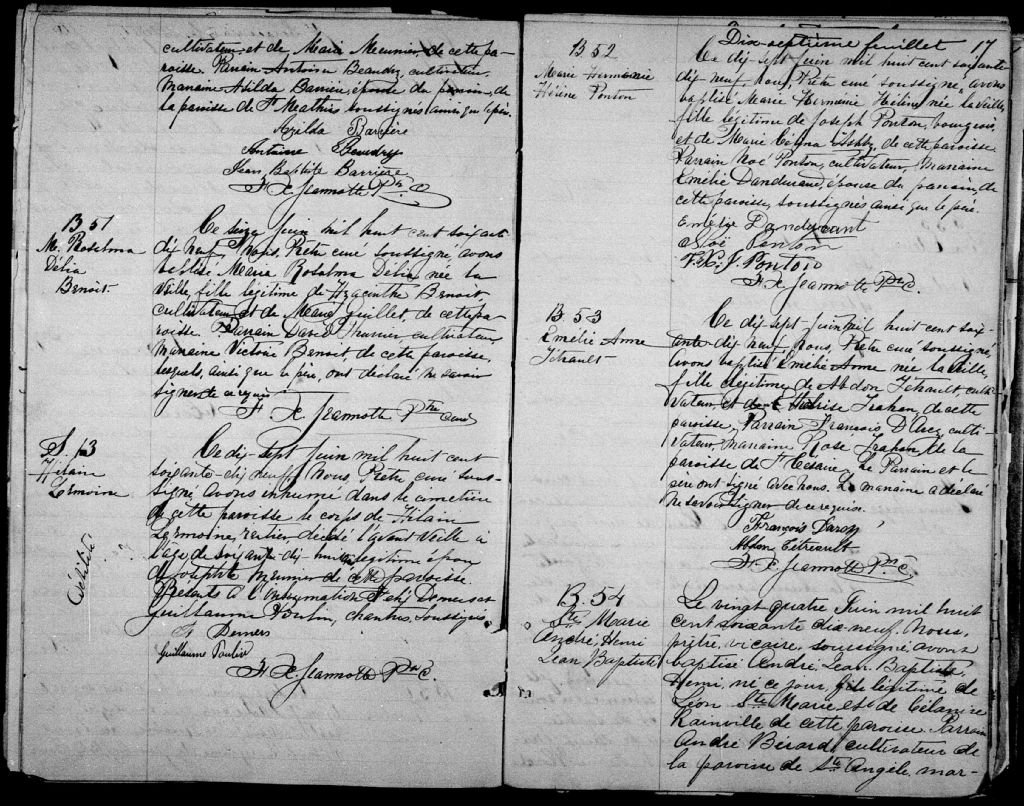 cultivateur, et de Marie Meunier, de cette pa-
roisse. Parrain Antoine Beaudry, cultivateur,
Marraine Azilda Barrière, épouse du parrain, de
la paroisse de St Mathias soussignés, ainsi que le père.
Azilda Barrière
Antoine Beaudry
Jean Baptiste Barrière
F X Jeannotte Ptre C
B 51
M. Rosalma
Délia
Benoit
Ce seize Juin mil huit cent soixante
dix neuf, Nous, Prêtre curé soussigné avons
baptisé Marie Rosalma Délia, née la
veille, fille légitime de Hyacinthe Benoit
cultivateur et de Marie Guillet, de cette pa-
roisse. Parrain David cultivateur,
Marraine Victoire Benoit de cette paroisse,
lesquels, ainsi que le père, ont déclaré ne savoir
signer de ce requis
F X Jeannotte Ptre curé
S. 13
Hilaire
Lemoine
Célibte
Ce dix-sept Juin mil huit cent
soixante-dix neuf, Nous, Prêtre curé sous-
signé, avons inhumé dans le cimetière
de cette paroisse le corps de Hilaire
Lemoine, rentier, décédé l'avant veille à
l'age de soixante dix huit légitime époux
de Josephte Meunier de cette paroisse.
Présents à l'inhumation F. Demers et
Guillaume Poulin, chantres, soussignés
F Demers
Guillaume Poulin
F X Jeannotte Ptre C.
Dix-septième feuillet 17
B 52
Marie Hermenie
Hélène Ponton
Ce dix-sept Juin mil huit cent soixante
dix-neuf, Nous, Prêtre curé soussigné, avons
baptisé Marie Hermenie Hélène née la veille,
fille légitime de Joseph Ponton, bourgeois,
et de Marie Célina Ashby, de cette paroisse.
Parrain Noé Ponton, cultivateur, Marraine
Emélie Dandurand, épouse du parrain, de
cette paroisse, soussignés ainsi que le père.
Emélie Dandurant
Noé Ponton
F. X. J. Ponton
F X Jeannotte Ptre C.
B 53
Emélie Anne
Tétrault
Ce dix-sept Juin mil huit cent soix-
ante-dix neuf Nous Prêtre curé soussigné,
avons baptisé Emélie Anne née la veille,
fille légitime de Abdon Tétrault, culti-
vateur, et de Trahan, de cette
paroisse, Parrain François Darcy, culti-
vateur, marraine Rosé Trahan, de la
paroisse de St Césaire, Le Parrain et le
père ont signé avec nous. La marraine a déclaré
ne savoir signer de ce requis.
François Darcy
Abdon Tétreault
F X Jeannotte Ptre C.
B 54
Ste Marie
André, Henri
Jean Baptiste
Le vingt quatre Juin mil huit
cent soixante dix-neuf. Nous,
prêtre, vicaire, soussigné avons
baptisé André, Jean Baptiste
Henri, né ce jour, fils légitime de
Léon Ste Marie et de Célanire
Rainville de cette paroisse Parrain
André Bérard, cultivateur de
la paroisse de Ste Angèle, mar-